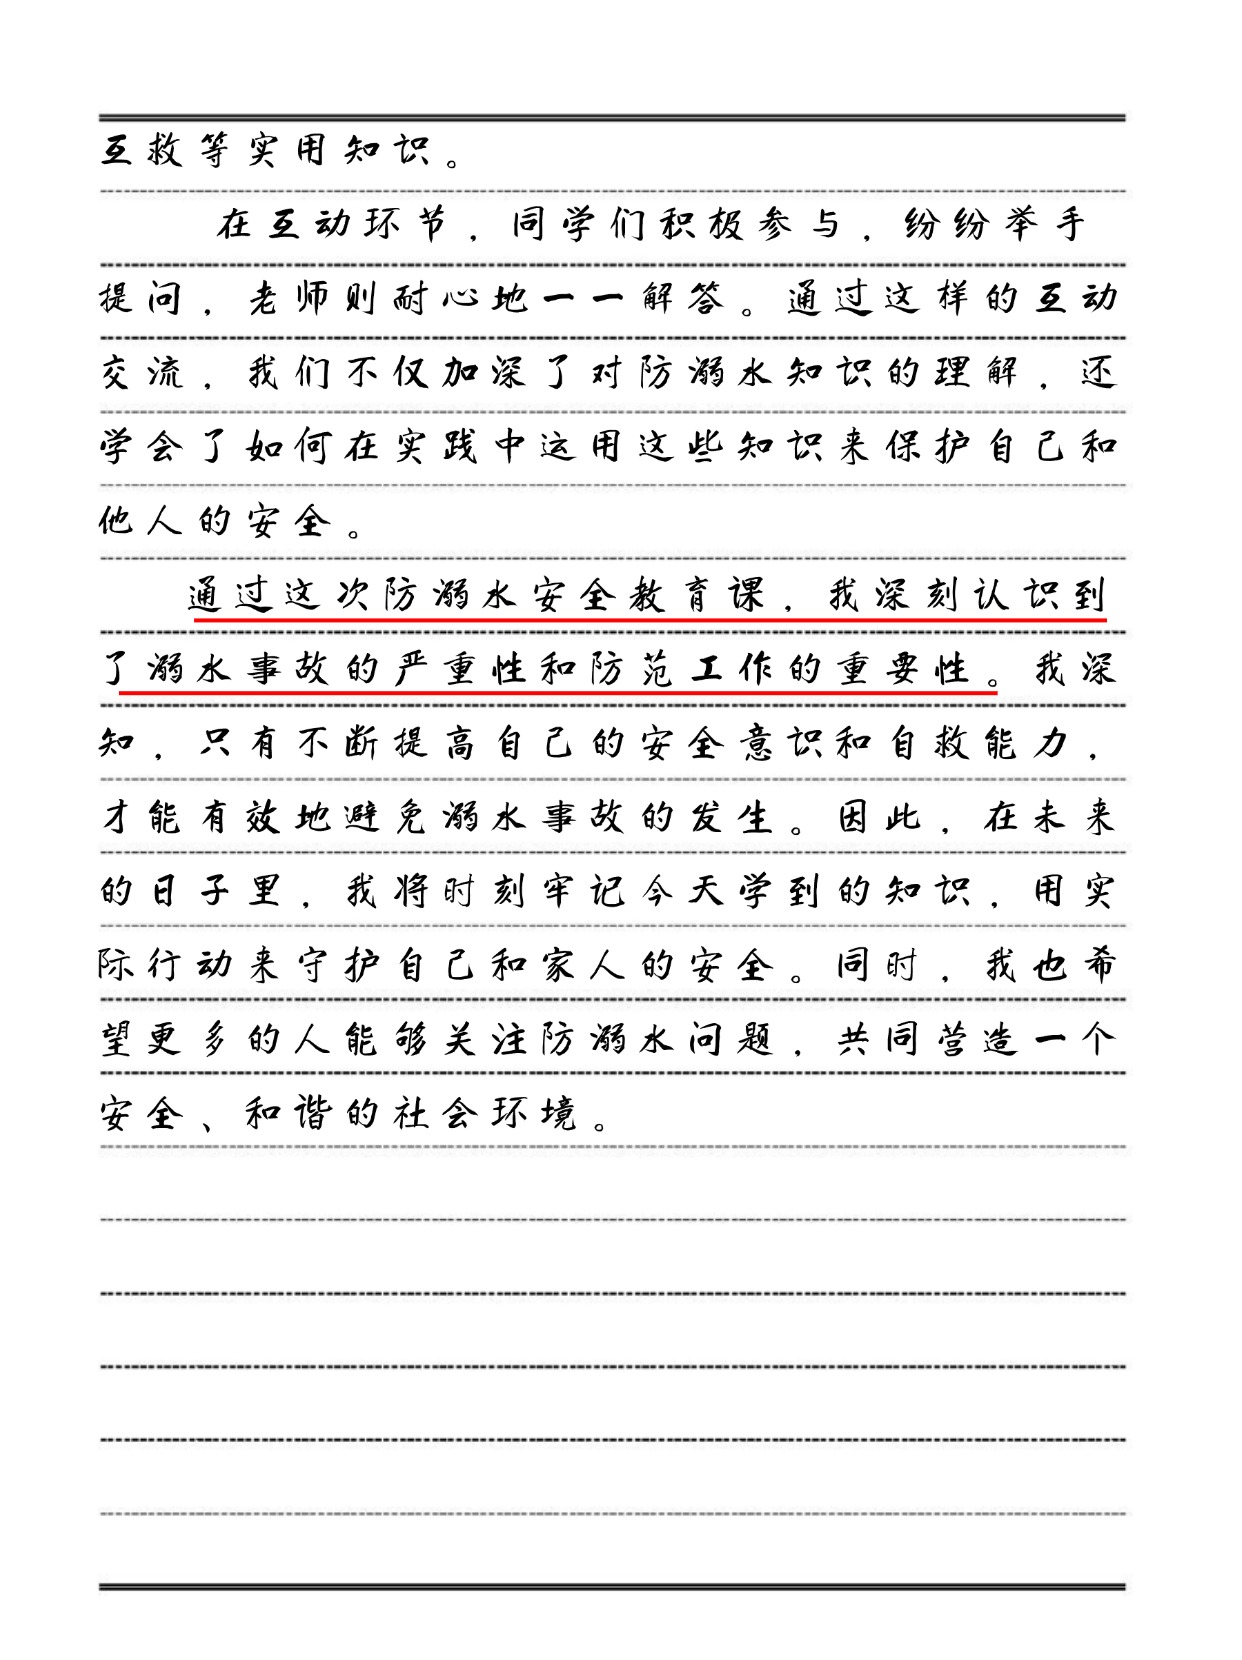 互救等实用知识。
在互动环节，同学们积极参与，纷纷举手
提问，老师则耐心地一一解答。通过这样的互动
交流，我们不仅加深了对防溺水知识的理解，还
学会了如何在实践中运用这些知识来保护自己和
他人的安全。
通过这次防溺水安全教育课，我深刻认识到
了溺水事故的严重性和防范工作的重要性。我深
知，只有不断提高自己的安全意识和自救能力，
才能有效地避免溺水事故的发生。因此，在未来
的日子里，我将时刻牢记今天学到的知识，用实
际行动来守护自己和家人的安全。同时，我也希
望更多的人能够关注防溺水问题，共同营造一个
安全、和谐的社会环境。